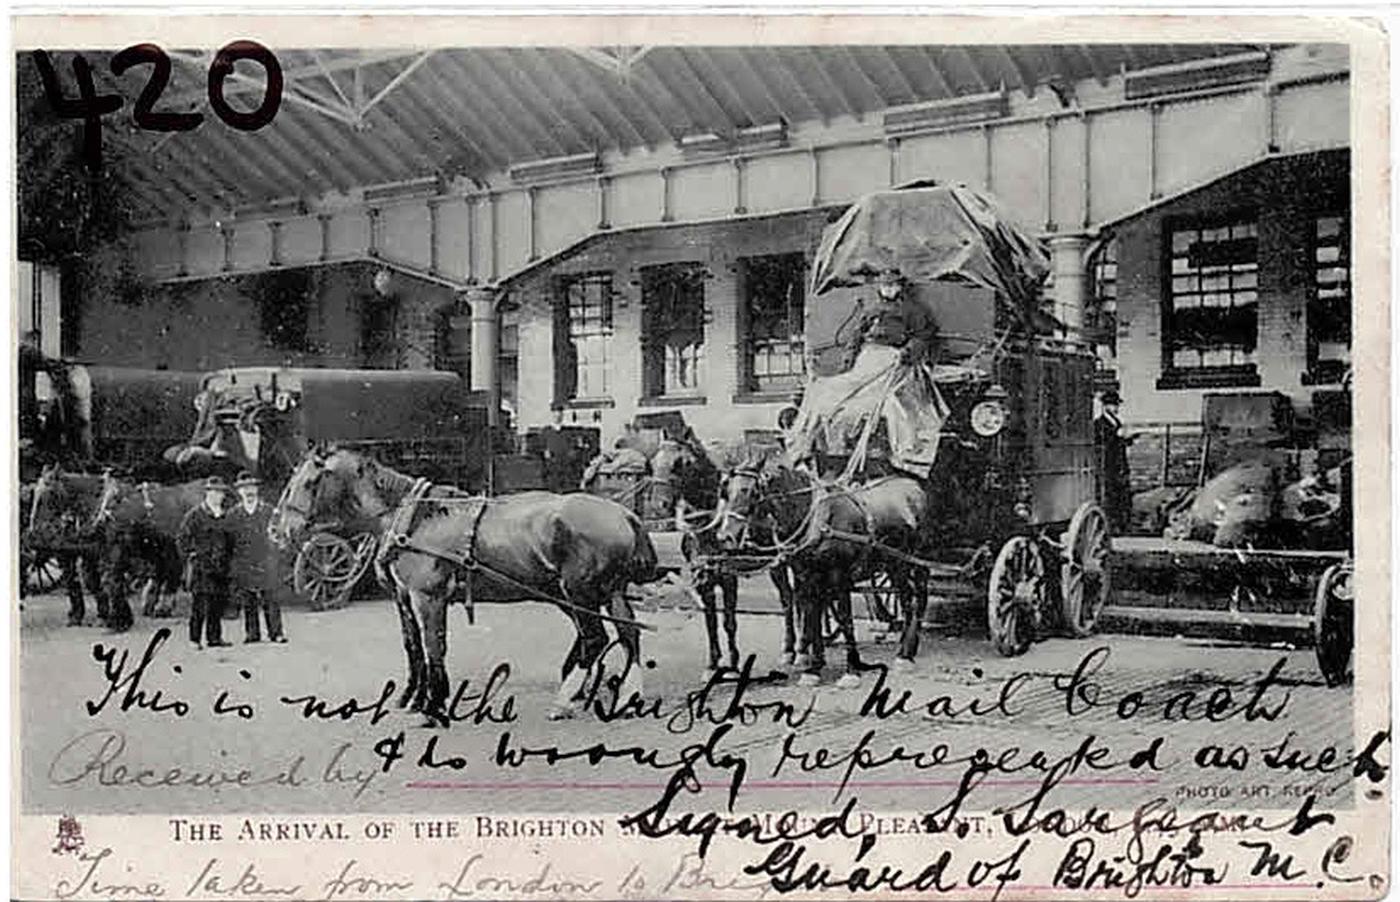 420
This is not the Brighton Mail Coach
Received by & is wrongly represented as such.
PHOTO ART REPRO
THE ARRIVAL OF THE BRIGHTON MOUNT PLEASANT,
Signed, S. Sargeant
Time taken from London to Brig
Guard of Brighton M.C.